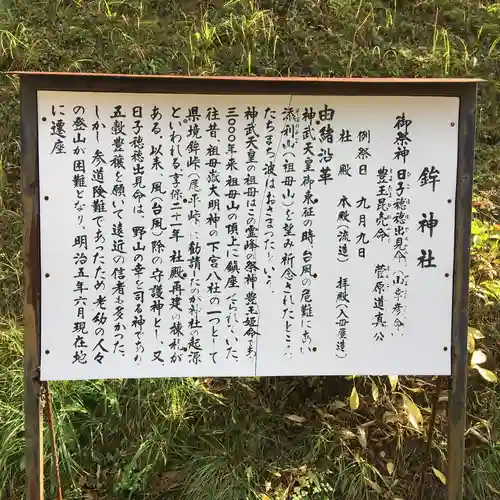 鉾神社
御祭神 日子穂穂出見命(山幸彦命)
豊玉毘売命 菅原道真公
例祭日 九月九日
社殿 本殿(流造) 拝殿(入母屋造)
由緒沿革
神武天皇御東征の時、台風の危難にあい
添利山(祖母山)を望み祈念されたところ
たちまち波はおさまったという。
神武天皇の祖母はこの霊峰の祭神豊玉姫命であり
三〇〇〇年来祖母山の頂上に鎮座されていた。
往昔祖母嶽大明神の下宮八社の一つとして
県境鉾峠(尾平峠)に勧請したが神社の起源
といわれる(享保二十一年社殿再建の棟札が
ある)以来、風(台風)除の守護神とし、又、
日子穂穂出見命は、野山の幸を司る神であり
五穀豊穣を願いて遠近の信者も多かつた。
しかし参道険難であつたため老幼の人々
の登山が困難となり、明治五年六月現在地
に遷座